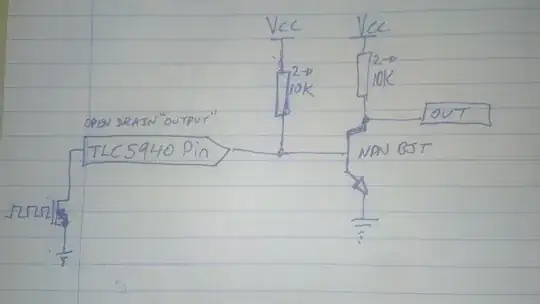 Vcc
Vcc
2→
10K
2→
10K
OPEN DRAIN "OUTPUT"
OUT
TLC5940 Pin
NPN BJT